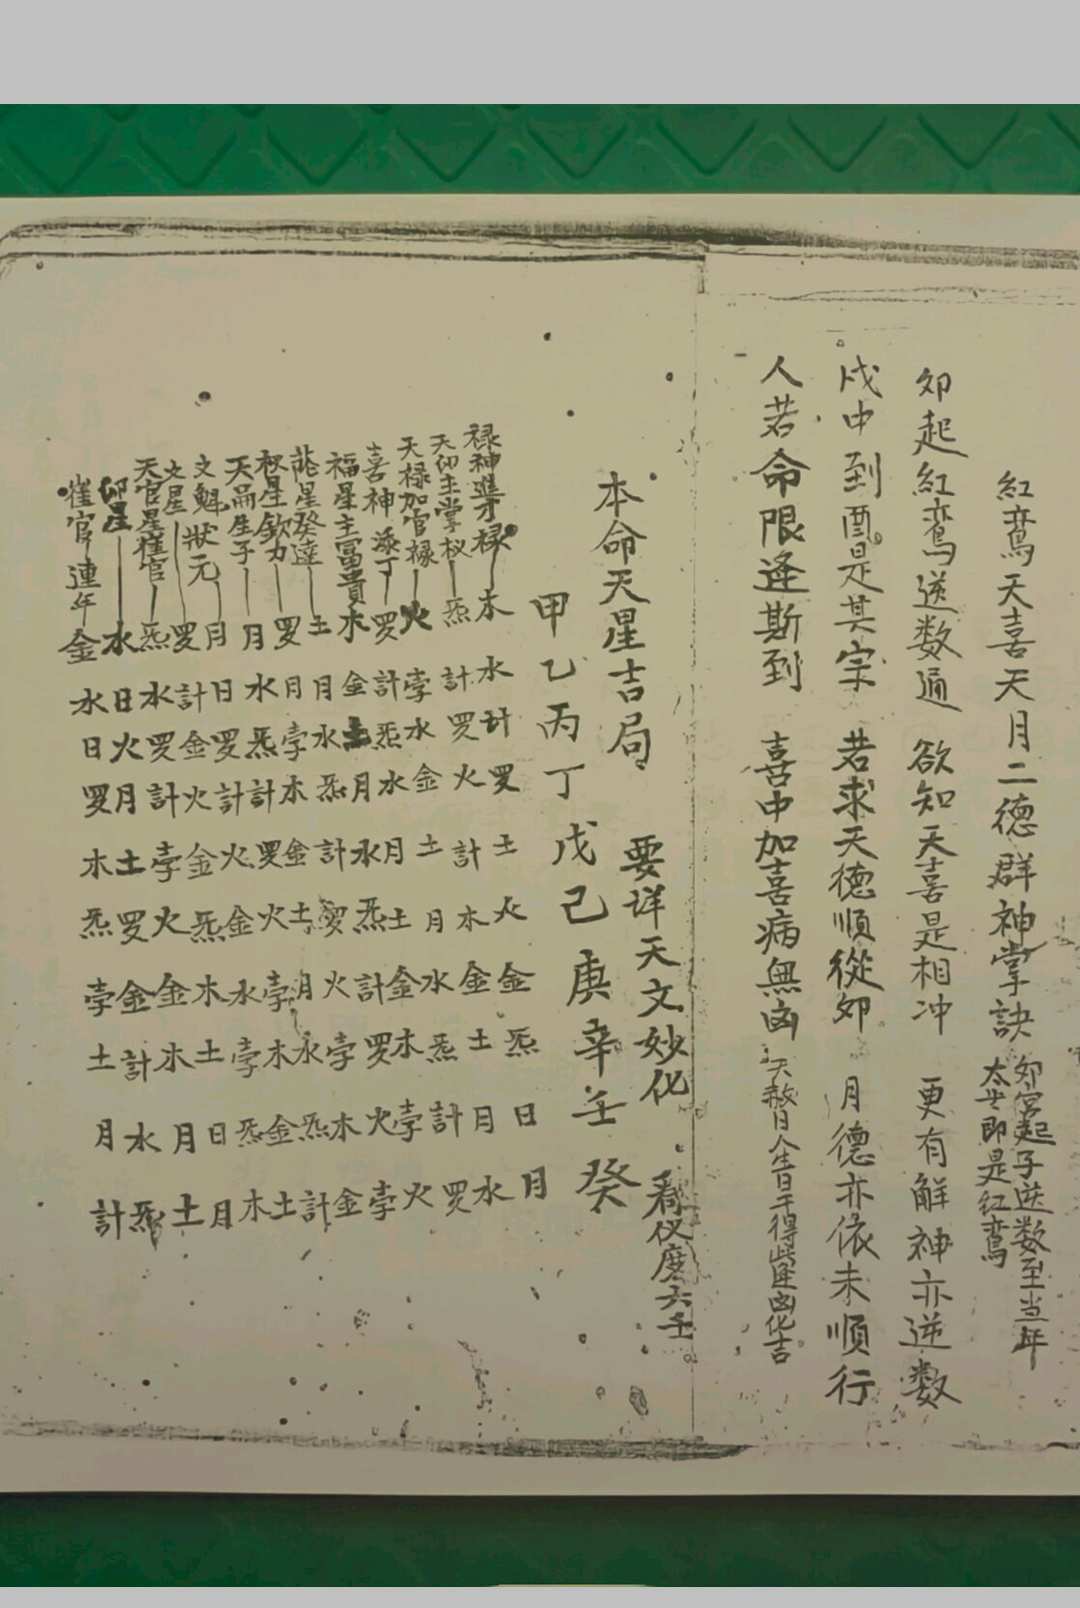 紅鸾天喜天月二德群神掌訣
卯宮起子逆数至当年
太岁即是红鸾
卯起紅鸾逆数通 欲知天喜是相冲 更有解神亦逆数
戌中到酉是其宗 若求天德順從卯 月德亦依未順行
人若命限逢斯到 喜中加喜病無凶
天赦日人生日干得此逢凶化吉
本命天星吉局 要详天文妙化 看仪度六壬
甲乙丙丁戊己庚辛壬癸
禄神進才禄 木水計罗土火金炁日月
天印主掌权 炁計罗火計木金土月水
天禄加官禄 火孛水金土月水炁計罗
喜神添丁 罗計炁水月土金木孛火
福星主富貴 木金土月水炁計罗火孛
星發達 土月水炁計罗火孛木金
星欽力 罗月孛木金土月水炁計
天生子 月水炁計罗火孛木金土
文魁狀元 月日罗計火金水孛炁木
文星 罗計金火金炁木土日月
天官星催官 炁水罗計孛火金木月土
印星 水日火月土罗金計水炁
催官連年 金水日罗木炁孛土月計